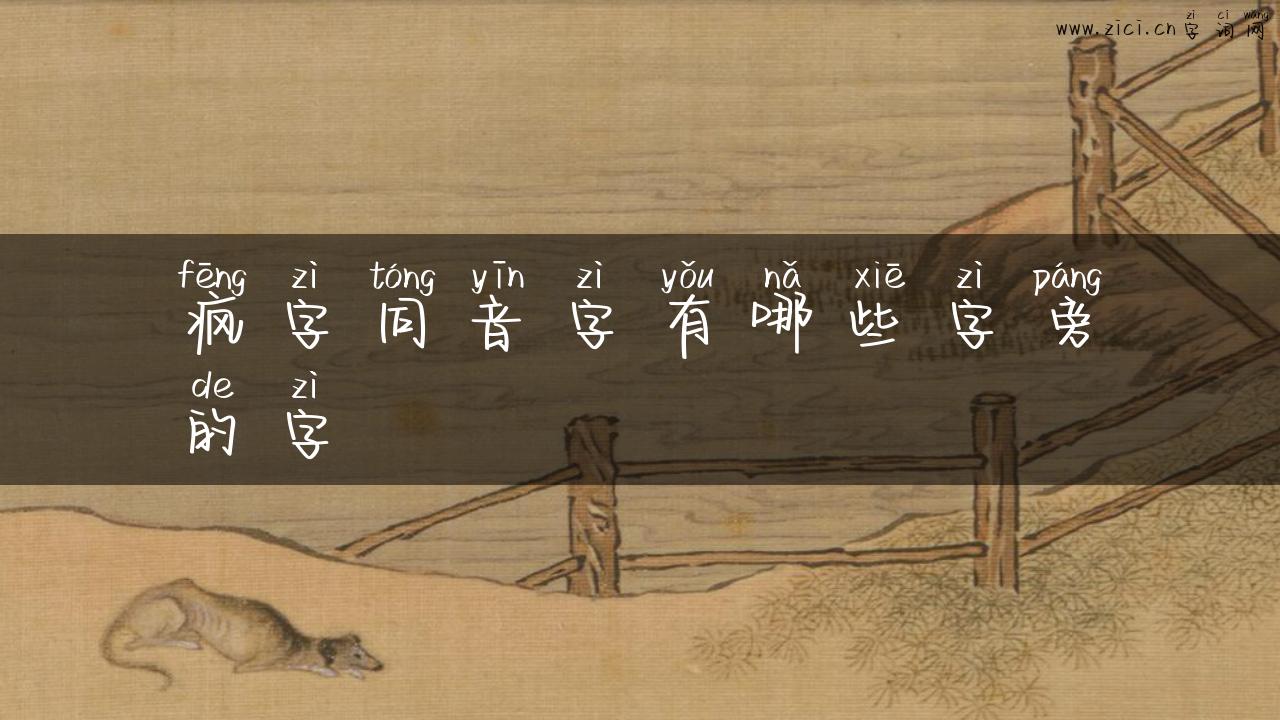 zì cí wǎng
www.zici.cn 字词网
fēng zì tóng yīn zì yǒu nǎ xiē zì páng
疯字同音字有哪些字旁
de zì
的字